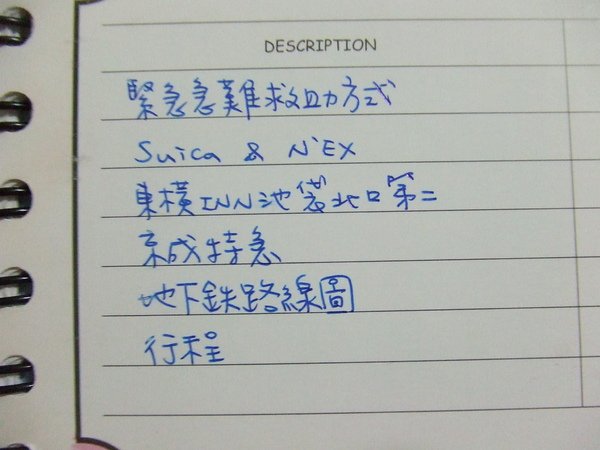 DESCRIPTION
緊急急難救助方式
Suica & N'EX
東橫INN池袋北口第二
京成特急
地下鉄路線圖
行程